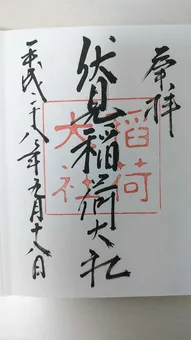 奉拝
伏見稲荷大社
稲荷
大社
平成二十八年 月十八日